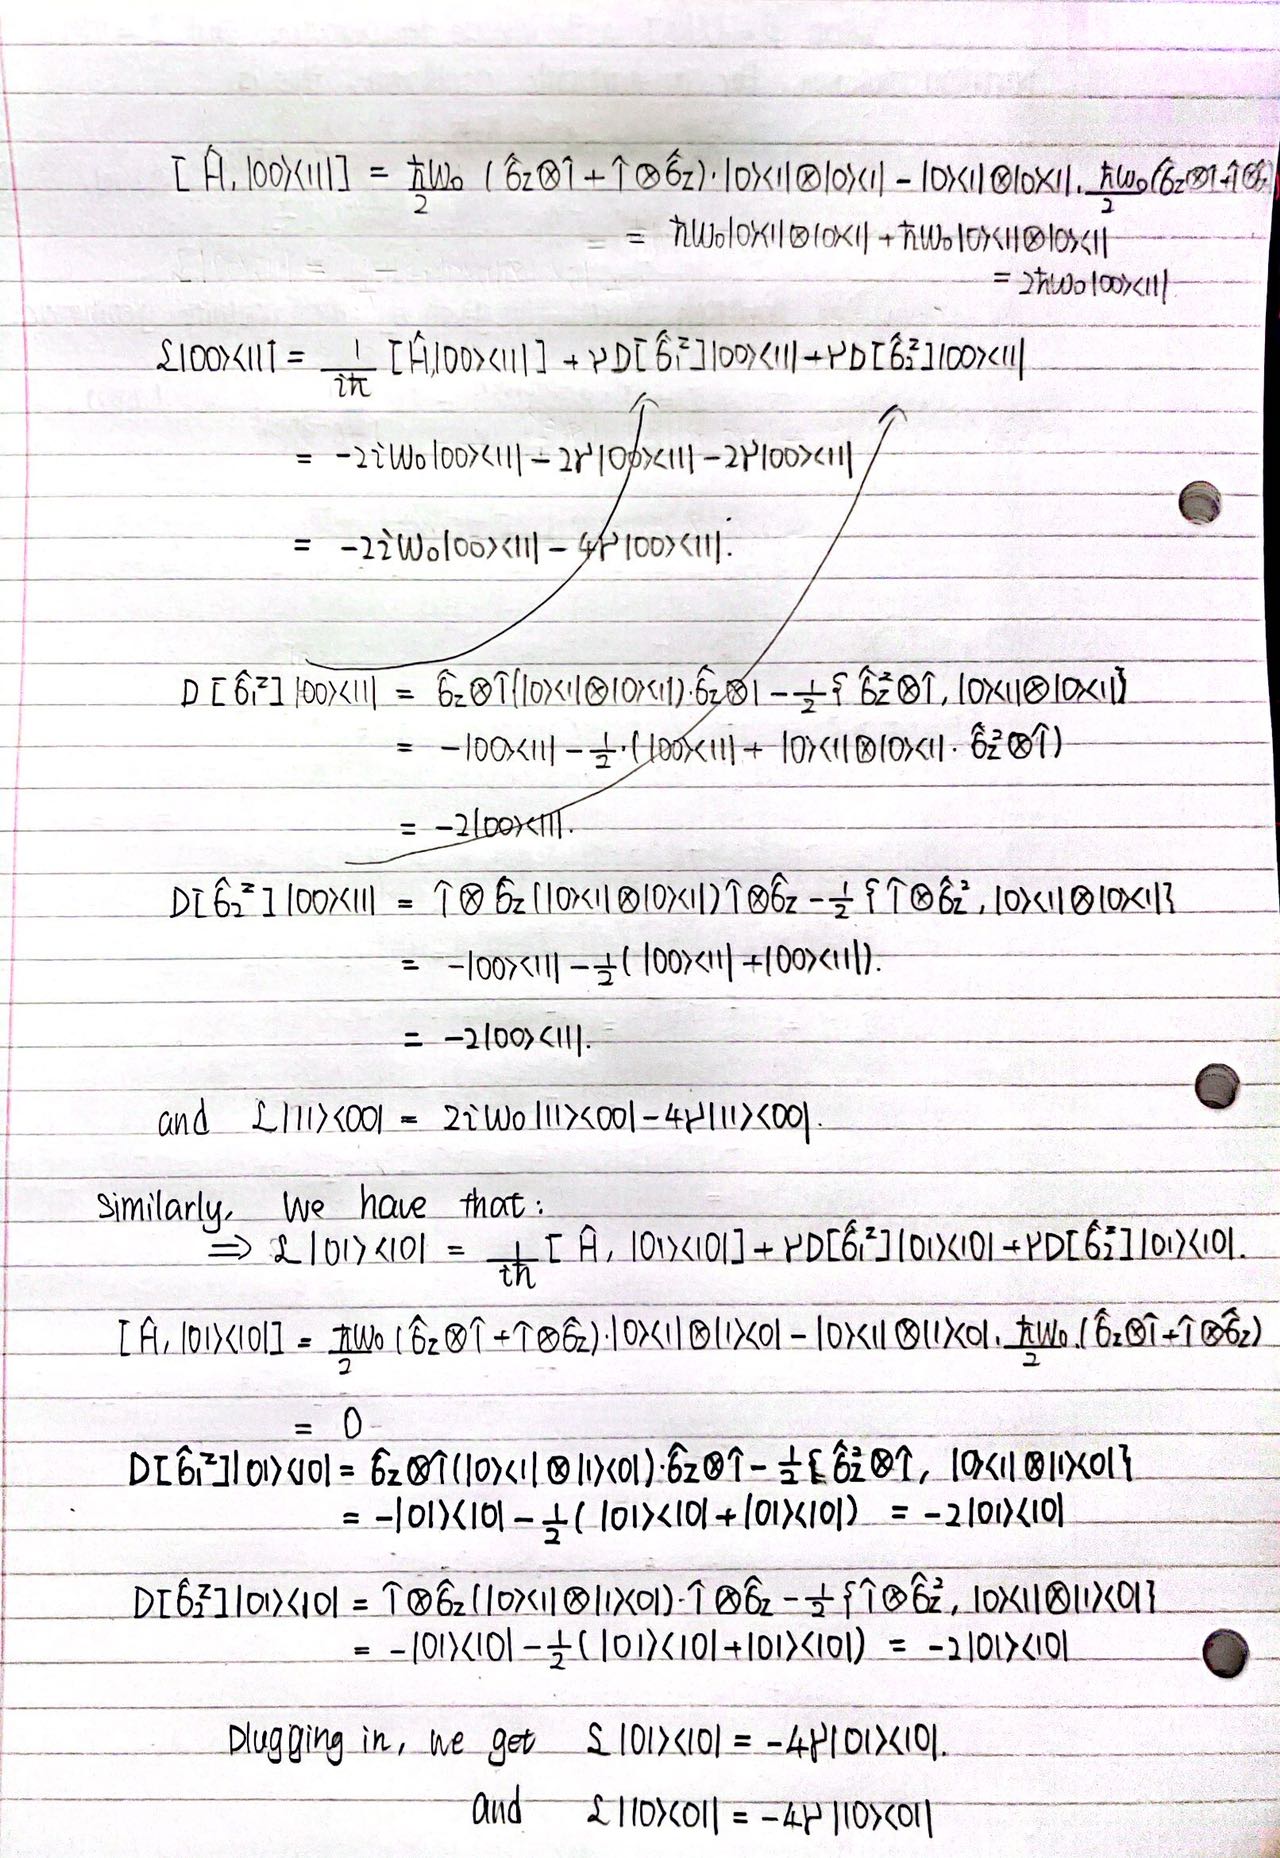 [Ĥ, |00><11|] = ħω₀/2 (σ̂z⊗1̂ + 1̂⊗σ̂z)·|0><1|⊗|0><1| - |0><1|⊗|0><1|. ħω₀/2 (σ̂z⊗1̂+1̂⊗σ̂z)
= ħω₀|0><1|⊗|0><1| + ħω₀|0><1|⊗|0><1|
= 2ħω₀|00><11|
ℒ|00><11| = 1/iħ [Ĥ,|00><11|] + γD[σ̂₁ᶻ]|00><11| + γD[σ̂₂ᶻ]|00><11|
= -2iω₀|00><11| - 2γ|00><11| - 2γ|00><11|
= -2iω₀|00><11| - 4γ|00><11|.
D[σ̂₁ᶻ]|00><11| = σ̂z⊗1̂(|0><1|⊗|0><1|)·σ̂z⊗1 - 1/2{σ̂z²⊗1̂, |0><1|⊗|0><1|}
= -|00><11| - 1/2·(|00><11| + |0><1|⊗|0><1|· σ̂z²⊗1̂)
= -2|00><11|.
D[σ̂₂ᶻ]|00><11| = 1̂⊗σ̂z(|0><1|⊗|0><1|)1̂⊗σ̂z - 1/2{1̂⊗σ̂z², |0><1|⊗|0><1|}
= -|00><11| - 1/2(|00><11| + |00><11|).
= -2|00><11|.
and ℒ|11><00| = 2iω₀|11><00| - 4γ|11><00|.
Similarly, we have that:
⇒ ℒ|01><10| = 1/iħ [Ĥ, |01><10|] + γD[σ̂₁ᶻ]|01><10| + γD[σ̂₂ᶻ]|01><10|.
[Ĥ, |01><10|] = ħω₀/2 (σ̂z⊗1̂ + 1̂⊗σ̂z)·|0><1|⊗|1><0| - |0><1|⊗|1><0|. ħω₀/2.(σ̂z⊗1̂+1̂⊗σ̂z)
= 0
D[σ̂₁ᶻ]|01><10| = σ̂z⊗1̂(|0><1|⊗|1><0|)·σ̂z⊗1̂ - 1/2{σ̂z²⊗1̂, |0><1|⊗|1><0|}
= -|01><10| - 1/2(|01><10| + |01><10|) = -2|01><10|
D[σ̂₂ᶻ]|01><10| = 1̂⊗σ̂z(|0><1|⊗|1><0|)·1̂⊗σ̂z - 1/2{1̂⊗σ̂z², |0><1|⊗|1><0|}
= -|01><10| - 1/2(|01><10| + |01><10|) = -2|01><10|
Plugging in, we get ℒ|01><10| = -4γ|01><10|.
and ℒ|10><01| = -4γ|10><01|